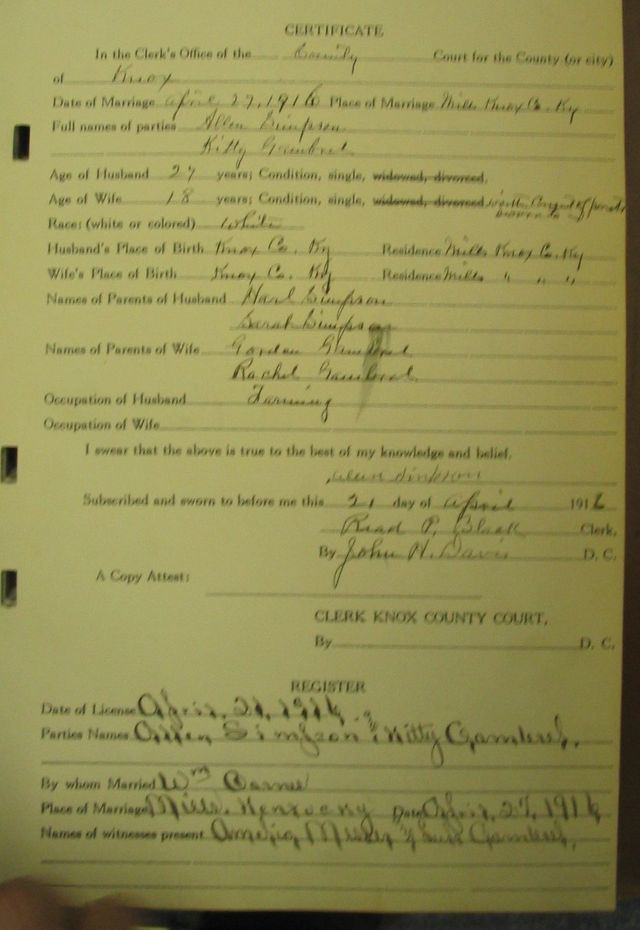 CERTIFICATE
In the Clerk's Office of the County Court for the County (or city)
of Knox
Date of Marriage April 27, 1916 Place of Marriage Mills Knox Co. Ky
Full names of parties Allen Simpson
Kitty Gambrel
Age of Husband 27 years; Condition, single, widowed, divorced.
Age of Wife 18 years; Condition, single, widowed, divorced with Consent of
Race: (white or colored) White
Husband's Place of Birth Knox Co. Ky Residence Mills Knox Co. Ky
Wife's Place of Birth Knox Co. Ky Residence Mills " " "
Names of Parents of Husband Simpson
Sarah Simpson
Names of Parents of Wife Gordon Gambrel
Rachel Gambrel
Occupation of Husband Farming
Occupation of Wife
I swear that the above is true to the best of my knowledge and belief.
Subscribed and sworn to before me this 21 day of April 1916
Read P. Black Clerk.
By John H. Davis D. C.
A Copy Attest:
CLERK KNOX COUNTY COURT.
By D. C.
REGISTER
Date of License April. 21, 1916
Parties Names Allen Simpson & Kitty Gambrel.
By whom Married Wm
Place of Marriage Mills. Kentucky Date April 27, 1916
Names of witnesses present & Gambrel.